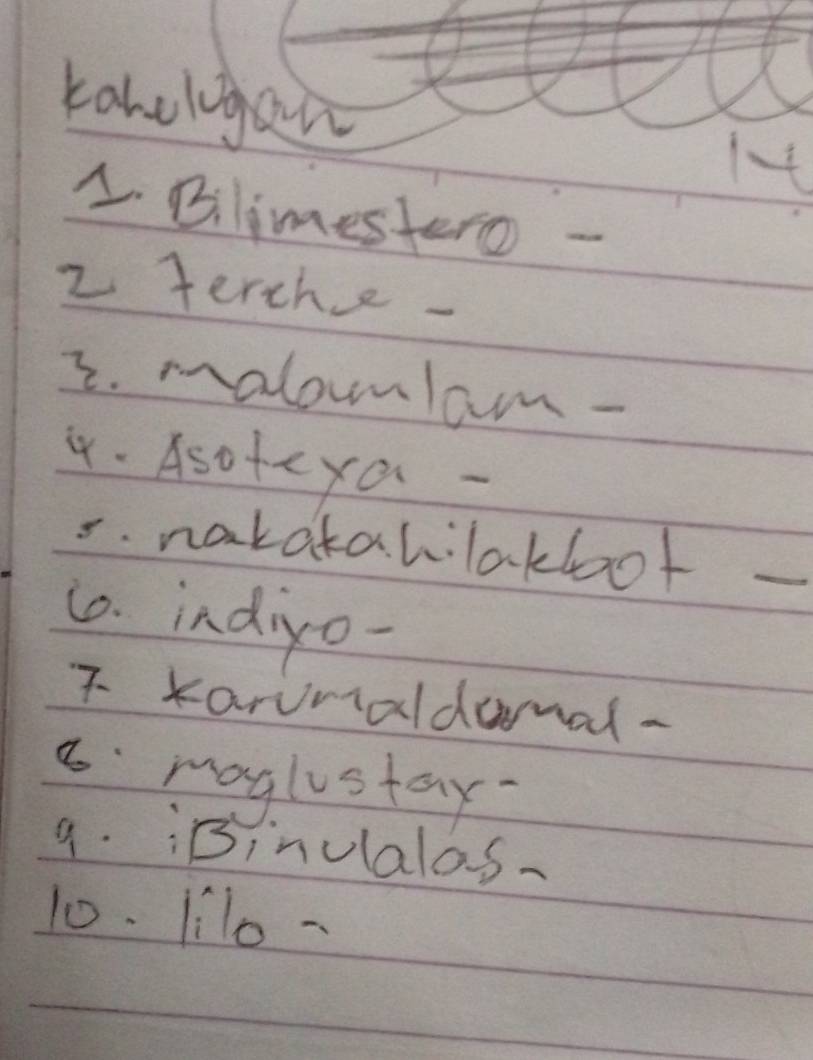 kahulugan
1. Bilimestero -
2 terche -
3. malaumlam -
4. Asoteya -
5. nakakahilakbot -
6. indiyo -
7. karumaldumal -
8. maglustay -
9. iBinulalas -
10. lilo -